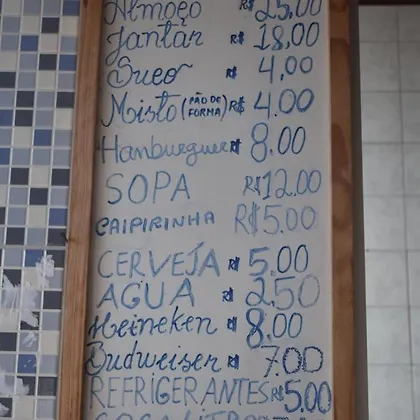 Almoço R$ 25,00
Jantar R$ 18,00
Suco R$ 4,00
Misto (PÃO DE FORMA) R$ 4.00
Hamburguer R$ 8.00
SOPA R$12.00
CAIPIRINHA R$5.00
CERVEJA R$ 5.00
AGUA R$ 2.50
Heineken R$ 8.00
Budweiser R$ 7.00
REFRIGERANTES R$5.00